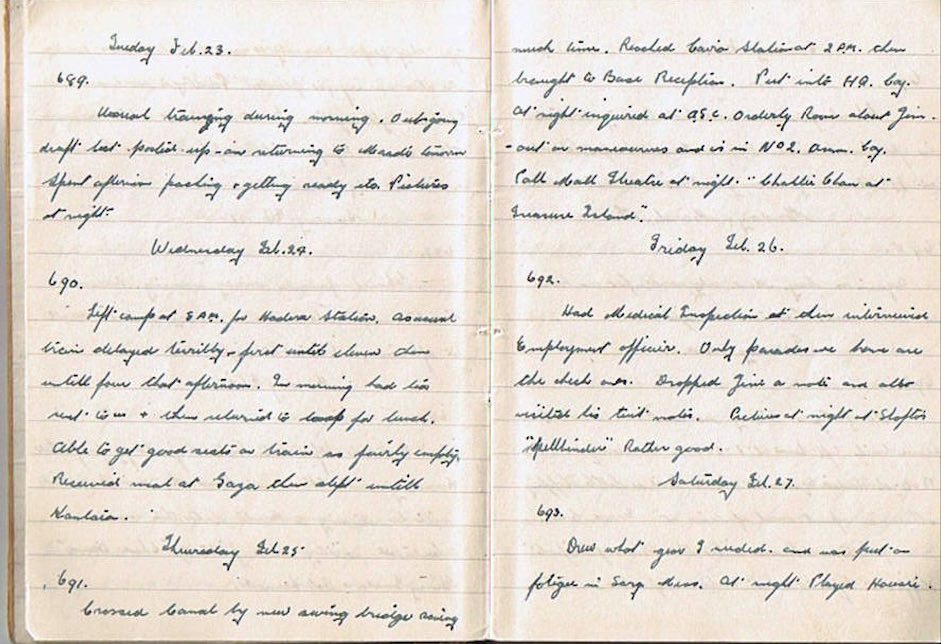 Tuesday Feb. 23.
689.
Usual training during morning. Outgoing
draft list posted up - am returning to Maadi tomorrow
Spent afternoon packing & getting ready etc. Pictures
at night.
Wednesday Feb. 24.
690.
Left camp at 8 A.M. for Hadera Station. As usual
train delayed terribly - first untill eleven then
untill four that afternoon. In morning had tea
sent to us & then returned to camp for lunch.
Able to get good seats on train as fairly empty.
Received meal at Gaza then slept untill
Kantara.
Thursday Feb. 25
691.
Crossed Canal by new swing bridge saving
much time. Reached Cairo Station at 2 P.M. then
brought to Base Reception. Put into H.Q. Coy.
At night inquired at A.S.C. Orderly Room about Jim.
- out on manoeuvres and is in No 2. Amm. Coy.
Pall Mall Theatre at night. "Charlie Chan at
Treasure Island".
Friday Feb. 26.
692.
Had Medical Inspection at then interviewed
Employment officer. Only parades we have are
the check ones. Dropped Jim a note and also
visited his tent mates. Pictures at night at Shafto's
"Spellbinder" Rather good.
Saturday Feb. 27.
693.
Drew what gear I needed. and was put on
fatigue in Serg Mess. At night Played Housie.